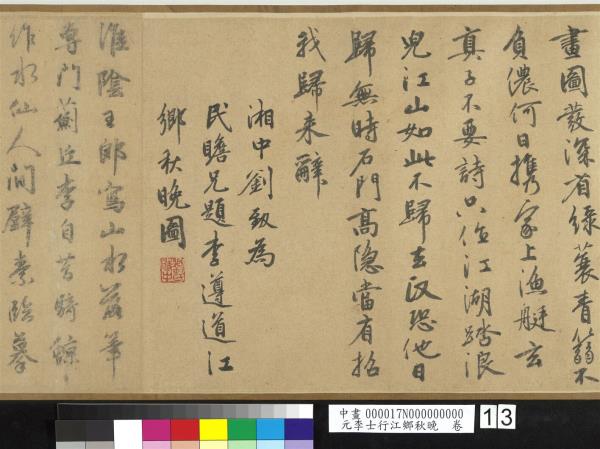 畫圖深有綠蓑青篛不
負儂何日携家上漁艇玄
真子不要詩只作江湖踏浪
兒江山如此不歸去政恐他日
歸無時石門高隱當有招
我歸来辭
湘中劉致為
民瞻兄題李遵道江
鄉秋晚圖
淮陰王郎寫山水筆
專門薊丘李自苦騎鯨
作水仙人間壁素臨摹
中畫 000017N000000000
元李士行江鄉秋晚 卷
13